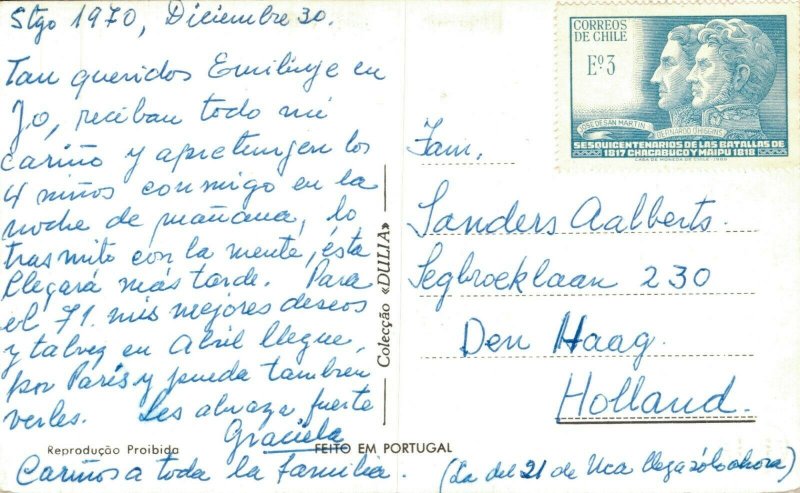 Stgo 1970, Diciembre 30.
Tan queridos Emilinge en
Jo, reciban todo mi
cariño y apretungen los
4 niños conmigo en la
noche de mañana, lo
trasmito con la mente, ésta
llegará más tarde. Para
el 71. mis mejores deseos
y talvez en Abril llegue,
por París y pueda tambien
verles. Les abraza fuerte
Graciela
Cariños a toda la familia.
(La del 21 de Uca llega sólo ahora)
Reprodução Proibida
FEITO EM PORTUGAL
Colecção «DULIA»
CORREOS
DE CHILE
Eº3
JOSE DE SAN MARTIN
BERNARDO O'HIGGINS
SESQUICENTENARIOS DE LAS BATALLAS DE
1817 CHACABUCO Y MAIPU 1818
CASA DE MONEDA DE CHILE
Fam.
Sanders Aalberts.
Segbroeklaan 230
Den Haag.
Holland.